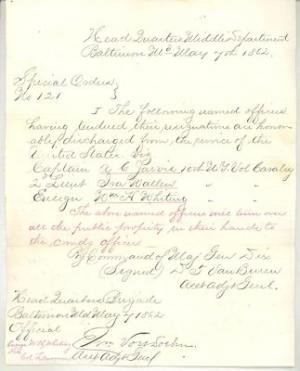 Head Quarters Middle Department
Baltimore Md May 7th 1862.
Special Orders
No 121
I The following named officers
having tendered their resignation are honor-
ably discharged from the service of the
United States Viz
Captain C Jarvis 10th Vol Cavalry
2d Lieut Ira Waller " "
Ensign Wm H Whiting " "
The above named officers will turn over
all the public property in their hands to
the comdg officer
By Command of Maj Gen Dix
(Signed) D T Van Buren
Asst Adjt Genl.
Head Quarters Brigade
Baltimore Md May 7 1862
Official
Ensign W H Whiting
Asst Adjt Genl